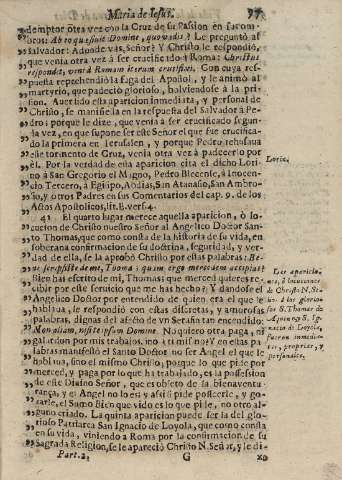 Maria de Iesus. 97
demptor otra vez con la Cruz de su Passion en sus om-
bros: Ab eo quæsiuit Domine, quo vadis? Le preguntò al
Salvador: Adonde vas, Señor? Y Christo le respondiò,
que venia otra vez à ser crucificado à Roma: Christus
respondit, venio Romam iterum crucifixi. Con cuya res-
puesta reprehendiò la fuga del Apostol, y le animò al
martyrio, que padeciò glorioso, bolviendose à la pri-
sion. Aver sido esta aparicion inmediata, y personal de
Christo, se manifiesta en la respuesta del Salvador à Pe-
dro; porque le dize, que venia à ser crucificado segun-
da vez, en que supone ser este Señor el que fue crucifica-
do la primera en Ierusalen, y porque Pedro rehusava
este tormento de Cruz, venia otra vez à padecerlo por
èl. Por la verdad de esta aparicion cita el dicho Lori-
no à San Gregorio el Magno, Pedro Blecense, à Inocen-
cio Tercero, à Egisipo, Abdias, San Atanasio, San Ambro-
sio, y otros Padres en sus Comentarios del cap. 9. de los
Actos Apostolicos, lit. E. vers. 4.
Lorin.
41 El quarto lugar merece aquella aparicion, ò lo-
cucion de Christo nuestro Señor al Angelico Doctor San-
to Thomas, que como consta de la historia de su vida, en
soberana confirmacion de su doctrina, seguridad, y ver-
dad de ella, se la aprobò Christo por estas palabras: Be-
ne scripsisti de me, Thoma: quam ergo mercedem accipias?
Bien has escrito de mi, Thomas: que merced quieres re-
cibir por este servicio que me has hecho? Y dandose el
Angelico Doctor por entendido de quien era el que le
hablava, le respondiò con estas discretas, y amorosas
palabras, dignas del afecto de vn Serafin tan encendido:
Non aliam, nisi te ipsum Domine. No quiero otra paga, ni
galardon por mis trabajos, sino à ti mismo? Y en estas pa-
labras manifestò el Santo Doctor no ser Angel el que le
hablava, sino el mismo Christo, porque lo que pide por
merced, y paga por lo que ha trabajado, es la possession
de este Divino Señor, que es objeto de su bienaventu-
rança, y el Angel no lo es, y assi pide posseerle, y go-
zarle, el Sumo Bien que vido es lo que pide, no otro al-
guno criado. La quinta aparicion puede ser la del glo-
rioso Patriarca San Ignacio de Loyola, que como consta
en su vida, viniendo à Roma por la confirmacion de su
Sagrada Religion, se le apareciò Christo N. Señor, y le di-
Las aparicio-
nes, ò locuciones
de Christo N. Se-
ñor à los glorio-
sos S. Thomas de
Aquino, y S. Ig-
nacio de Loyola,
fueron inmedia-
tas, proprias, y
personales.
Part. 2. G xo